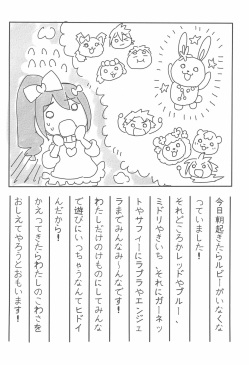 今日朝起きたらルビーがいなくな
っていました！
それどころかレッドやブルー、
ミドリやきいち、それにガーネッ
トやサフィーにラブラやエンジェ
ラまでみんなみ～んなです！
わたしだけのけものにしてみんな
で遊びにいっちゃうなんてヒドイ
んだから！
かえってきたらわたしのこわさを
おしえてやろうとおもいます！